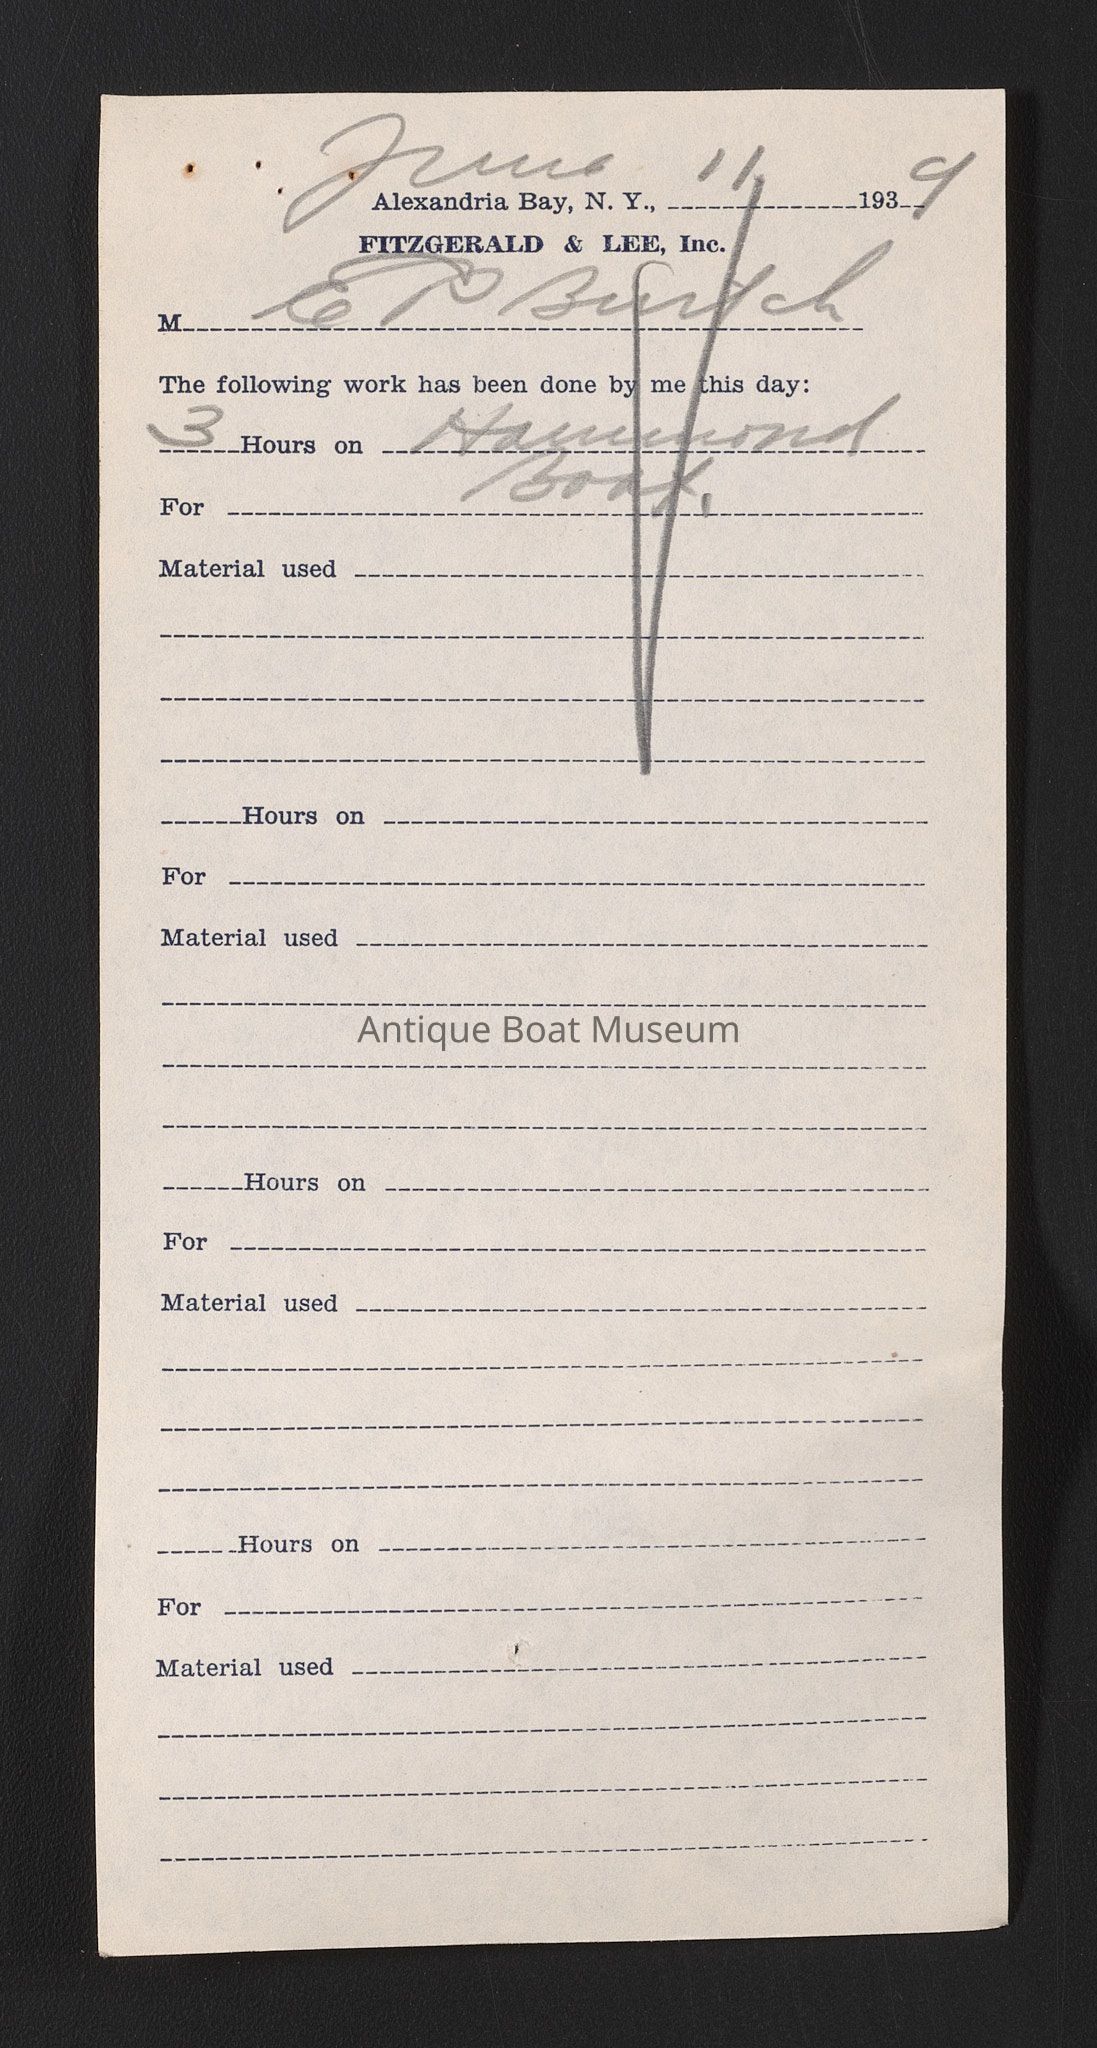 June 11
Alexandria Bay, N. Y., 1939
FITZGERALD & LEE, Inc.
M E P Burtch
The following work has been done by me this day:
3 Hours on Hammond
Boat.
For
Material used
Hours on
For
Material used
Antique Boat Museum
Hours on
For
Material used
Hours on
For
Material used